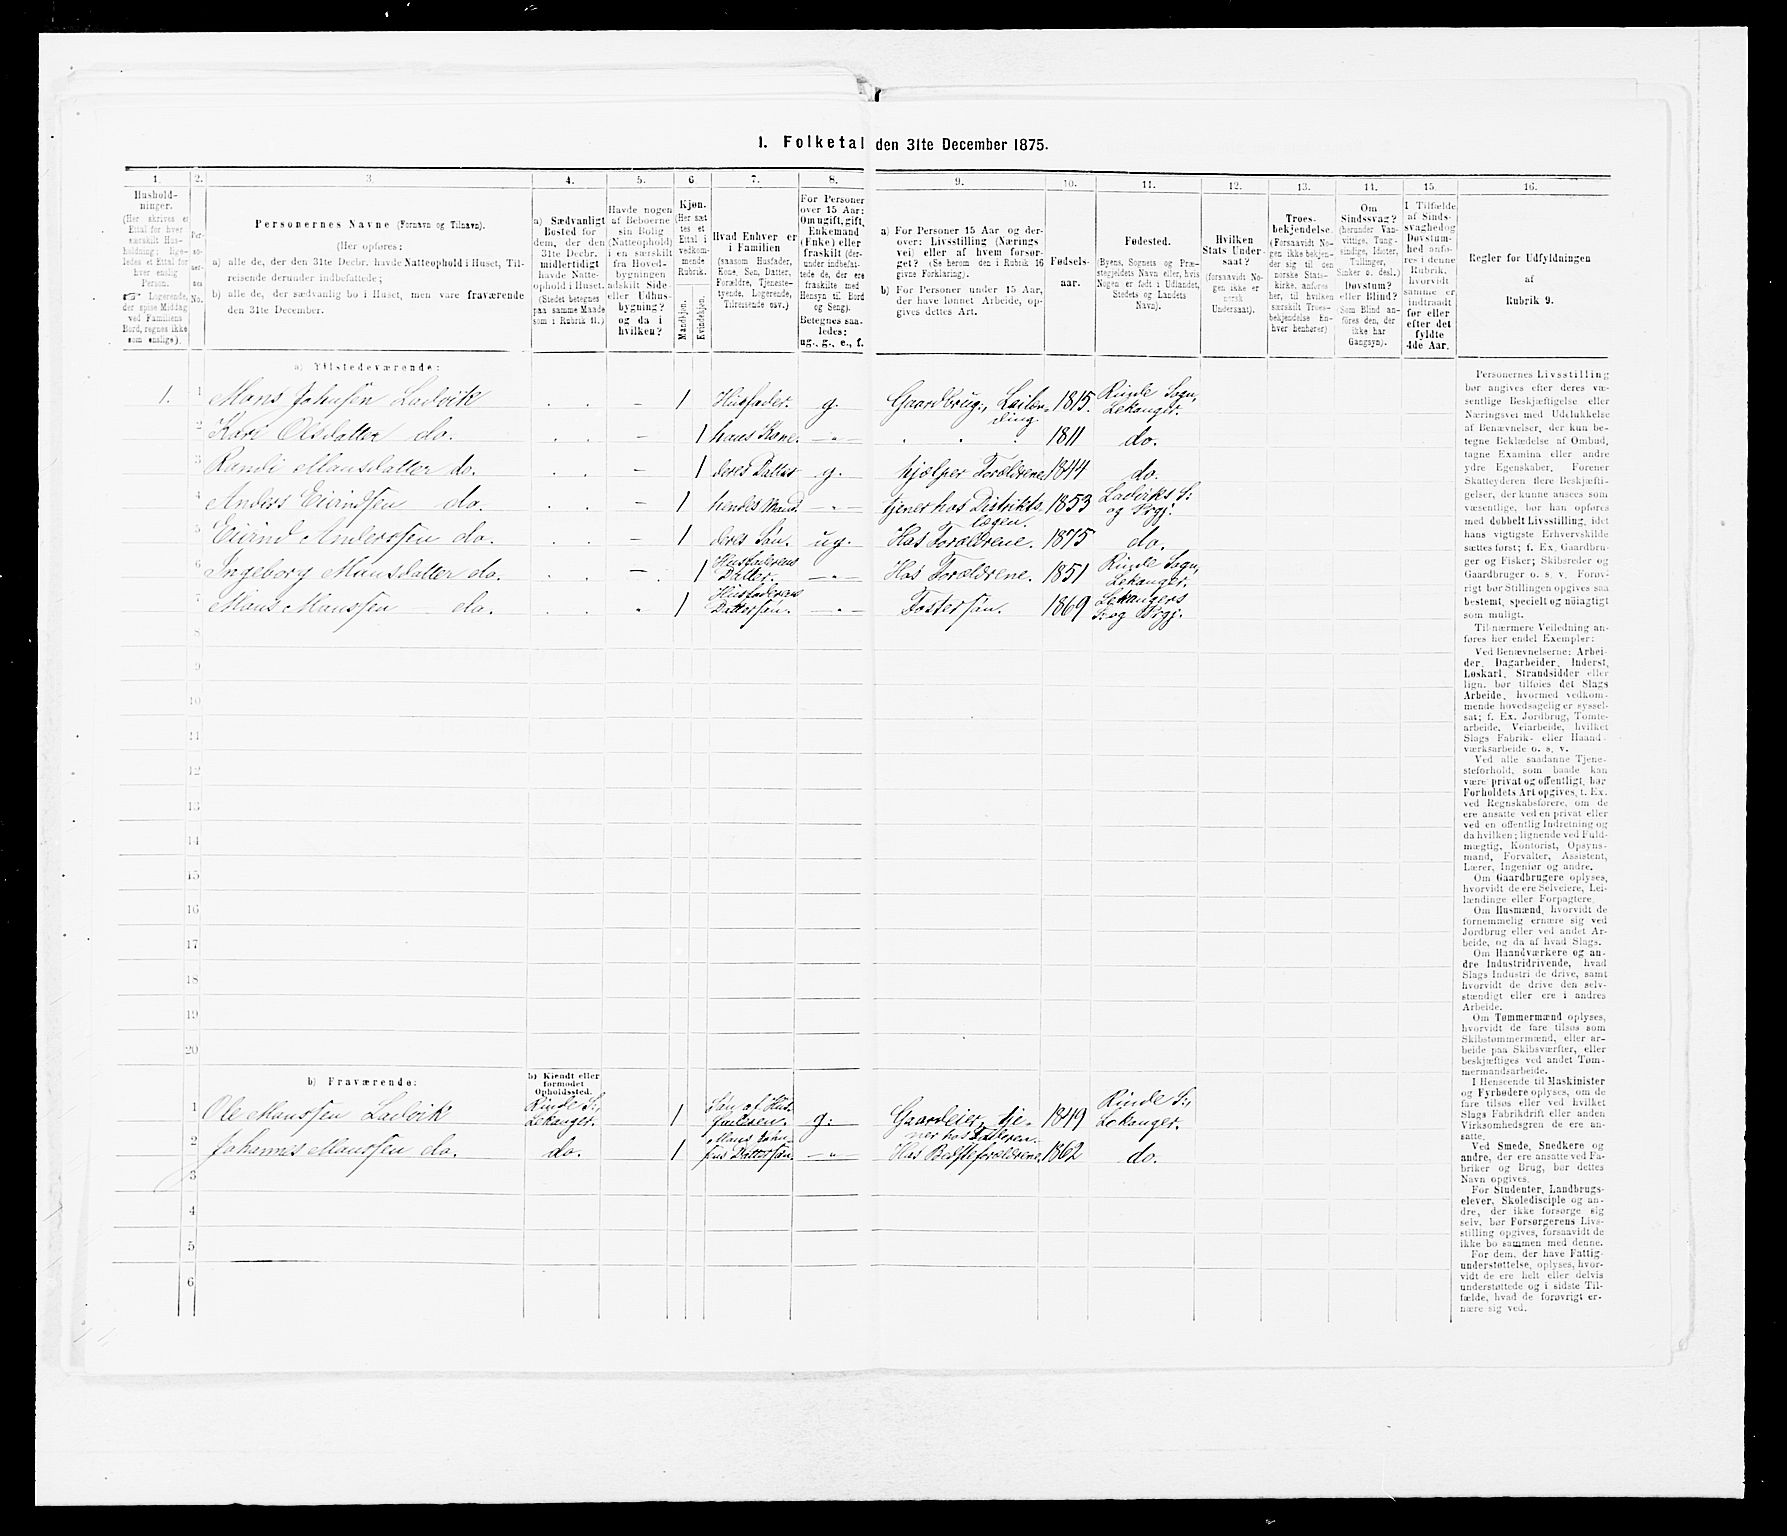 I. Folketal den 31te December 1875.
1.
2.
3.
4.
5.
6.
7.
8.
9.
10.
11.
12.
13.
14.
15.
16.
Hushold-
ninger.
(Her skrives et
Ettal for hver
særskilt Hus-
holdning; lige-
ledes et Ettal for
hver enslig
Person.
☞ Logerende,
der spise Middag
ved Familiens
Bord, regnes ikke
som enslige).
Per-
so-
ner-
nes
No.
Personernes Navne (Fornavn og Tilnavn).
(Her opføres:
a) alle de, der den 31te Decbr. havde Natteophold i Huset, Til-
reisende derunder indbefattede;
b) alle de, der sædvanlig bo i Huset, men vare fraværende
den 31te December.
a) Sædvanligt
Bosted for
dem, der den
31te Decbr.
midlertidigt
havde Natte-
ophold i Huset.
(Stedet betegnes
paa samme Maade
som i Rubrik 11.)
Havde nogen
af Beboerne
sin Bolig
(Natteophold)
i en særskilt
fra Hoved-
bygningen
adskilt Side-
eller Udhus-
bygning?
og da i
hvilken?
Kjøn.
(Her sæt-
tes et
Ettal i
vedkom-
mende
Rubrik.
Mandkjøn.
Kvindekjøn.
Hvad Enhver er
i Familien
(saasom Husfader,
Kone, Søn, Datter,
Forældre, Tjeneste-
tyende, Logerende,
Tilreisende osv.)
For Personer
over 15 Aar:
Om ugift, gift,
Enkemand
(Enke) eller
fraskilt (der-
under indbefat-
tede de, der ere
fraskilte med
Hensyn til Bord
og Seng).
Betegnes saa-
ledes:
ug., g., e., f.
a) For Personer 15 Aar og der-
over: Livsstilling (Nærings-
vei) eller af hvem forsør-
get? (Se herom den i Rubrik 16
givne Forklaring).
b) For Personer under 15 Aar,
der have lønnet Arbeide, op-
gives dettes Art.
Fødsels-
aar.
Fødested.
(Byens, Sognets og Præ-
stegjeldets Navn eller, hvis
Nogen er født i Udlandet,
Stedets og Landets
Navn).
Hvilken
Stats Under-
saat?
(forsaavidt No-
gen ikke er
norsk
Undersaat).
Troes-
bekjendelse.
(Forsaavidt No-
gen ikke bekjen-
der sig til den
norske Stats-
kirke, anføres
her, til hvilken
særskilt Troes-
bekjendelse En-
hver henhører)
Om
Sindssvag?
(herunder Van-
vittige, Tung-
sindige, Idioter,
Tullinger,
Sinker o. desl.)
Døvstum?
eller Blind?
(Som Blind an-
føres den, der
ikke har
Gangsyn).
I Tilfælde
af Sinds-
svaghed og
Døvstum-
hed anfø-
res i denne
Rubrik,
hvorvidt
samme er
indtraadt
før eller
efter det
fyldte
4de Aar.
Regler for Udfyldningen
af
Rubrik 9.
a) Tilstedeværende:
1. 1 Mons Johnsen Ladvik . . — 1 Husfader. g. Gaardbrug., Leilen-
ding. 1815. Rinde Sogn, Lekanger.
2 Kari Olsdatter do. . . — 1 hans Kone. —"— . . . 1811 do.
3 Randi Monsdatter do. — 1 deres Datter g. hjælper Forældrene 1844 do.
4 Anders Eiindsen do. . . — 1 hendes Mand —"— tjener hos Distrikts
lægen. 1853 Ladviks S: og Prgj.
5 Eiind Anderssen do. . . — 1 deres Søn. ug. Hos Forældrene. 1875 do.
6 Ingeborg Monsdatter do. . . — 1 Husfaderens
Datter. —"— Hos Forældrene. 1851 Rinde Sogn, Lekanger.
7 Mons Monssen do. . . " 1 Husfaderens
Dattersøn. —"— Fostersøn. 1869 Lekangers S: og Prgj.
8
9
10
11
12
13
14
15
16
17
18
19
20
b) Fraværende:
b) Kjendt eller
formodet
Opholdssted.
1 Ole Monssen Ladvik Rinde S:, Lekanger. 1 Søn af Hus-
faderen. g: Gaardeier, tje-
ner hos Faderen. 1849 Rinde S:, Lekanger.
2 Johannes Monssen do. do. 1 Mons John-
sens Dattersøn. —"— Hos Bedsteforældrene. 1862 do.
3
4
5
6
Personernes Livsstilling
bør angives efter deres væ-
sentlige Beskjæftigelse eller
Næringsvei med Udelukkelse
af Benævnelser, der kun be-
tegne Beklædelse af Ombud,
tagne Examina eller andre
ydre Egenskaber. Forener
Skatteyderen flere Beskjæfti-
gelser, der kunne ansees som
væsentlige, bør han opføres
med dobbelt Livsstilling, idet
hans vigtigste Erhvervskilde
sættes først; f. Ex. Gaardbru-
ger og Fisker; Skibsreder og
Gaardbruger o. s. v. Forøv-
rigt bør Stillingen opgives saa
bestemt, specielt og nøiagtigt
som muligt.
Til nærmere Veiledning an-
føres her endel Exempler:
Ved Benævnelserne: Arbei-
der, Dagarbeider, Inderst,
Løskarl, Strandsidder eller
lign. bør tilføies det Slags
Arbeide, hvormed vedkom-
mende hovedsagelig er syssel-
sat; f. Ex. Jordbrug, Tomte-
arbeide, Veiarbeide, hvilket
Slags Fabrik- eller Haand-
værksarbeide o. s. v.
Ved alle saadanne Tjene-
steforhold, som baade kan
være privat og offentligt, bør
Forholdets Art opgives, t. Ex.
ved Regnskabsførere, om de
ere ansatte ved en privat eller
ved en offentlig Indretning og
da hvilken; lignende ved Fuld-
mægtig, Kontorist, Opsyns-
mand, Forvalter, Assistent,
Lærer, Ingeniør og andre.
Om Gaardbrugere oplyses,
hvorvidt de ere Selveiere, Lei-
lændinge eller Forpagtere.
Om Husmænd, hvorvidt de
fornemmelig ernære sig ved
Jordbrug eller ved andet Ar-
beide, og da af hvad Slags.
Om Haandværkere og an-
dre Industridrivende, hvad
Slags Industri de drive, samt
hvorvidt de drive den selv-
stændigt eller ere i andres
Arbeide.
Om Tømmermænd oplyses,
hvorvidt de fare tilsøs som
Skibstømmermænd, eller ar-
beide paa Skibsværfter, eller
beskjæftiges ved andet Tøm-
mermandsarbeide.
I Henseende til Maskinister
og Fyrbødere oplyses, om de
fare tilsøs eller ved hvilket
Slags Fabrikdrift eller anden
Virksomhedsgren de ere an-
satte.
Ved Smede, Snedkere og
andre, der ere ansatte ved Fa-
briker og Brug, bør dettes
Navn opgives.
For Studenter, Landbrugs-
elever, Skoledisciple og an-
dre, der ikke forsørge sig
selv, bør Forsørgerens Livs-
stilling opgives, forsaavidt de
ikke bo sammen med denne.
For dem, der have Fattig-
understøttelse, oplyses, hvor-
vidt de ere helt eller delvis
understøttede og i sidste Til-
fælde, hvad de forøvrigt er-
nære sig ved.